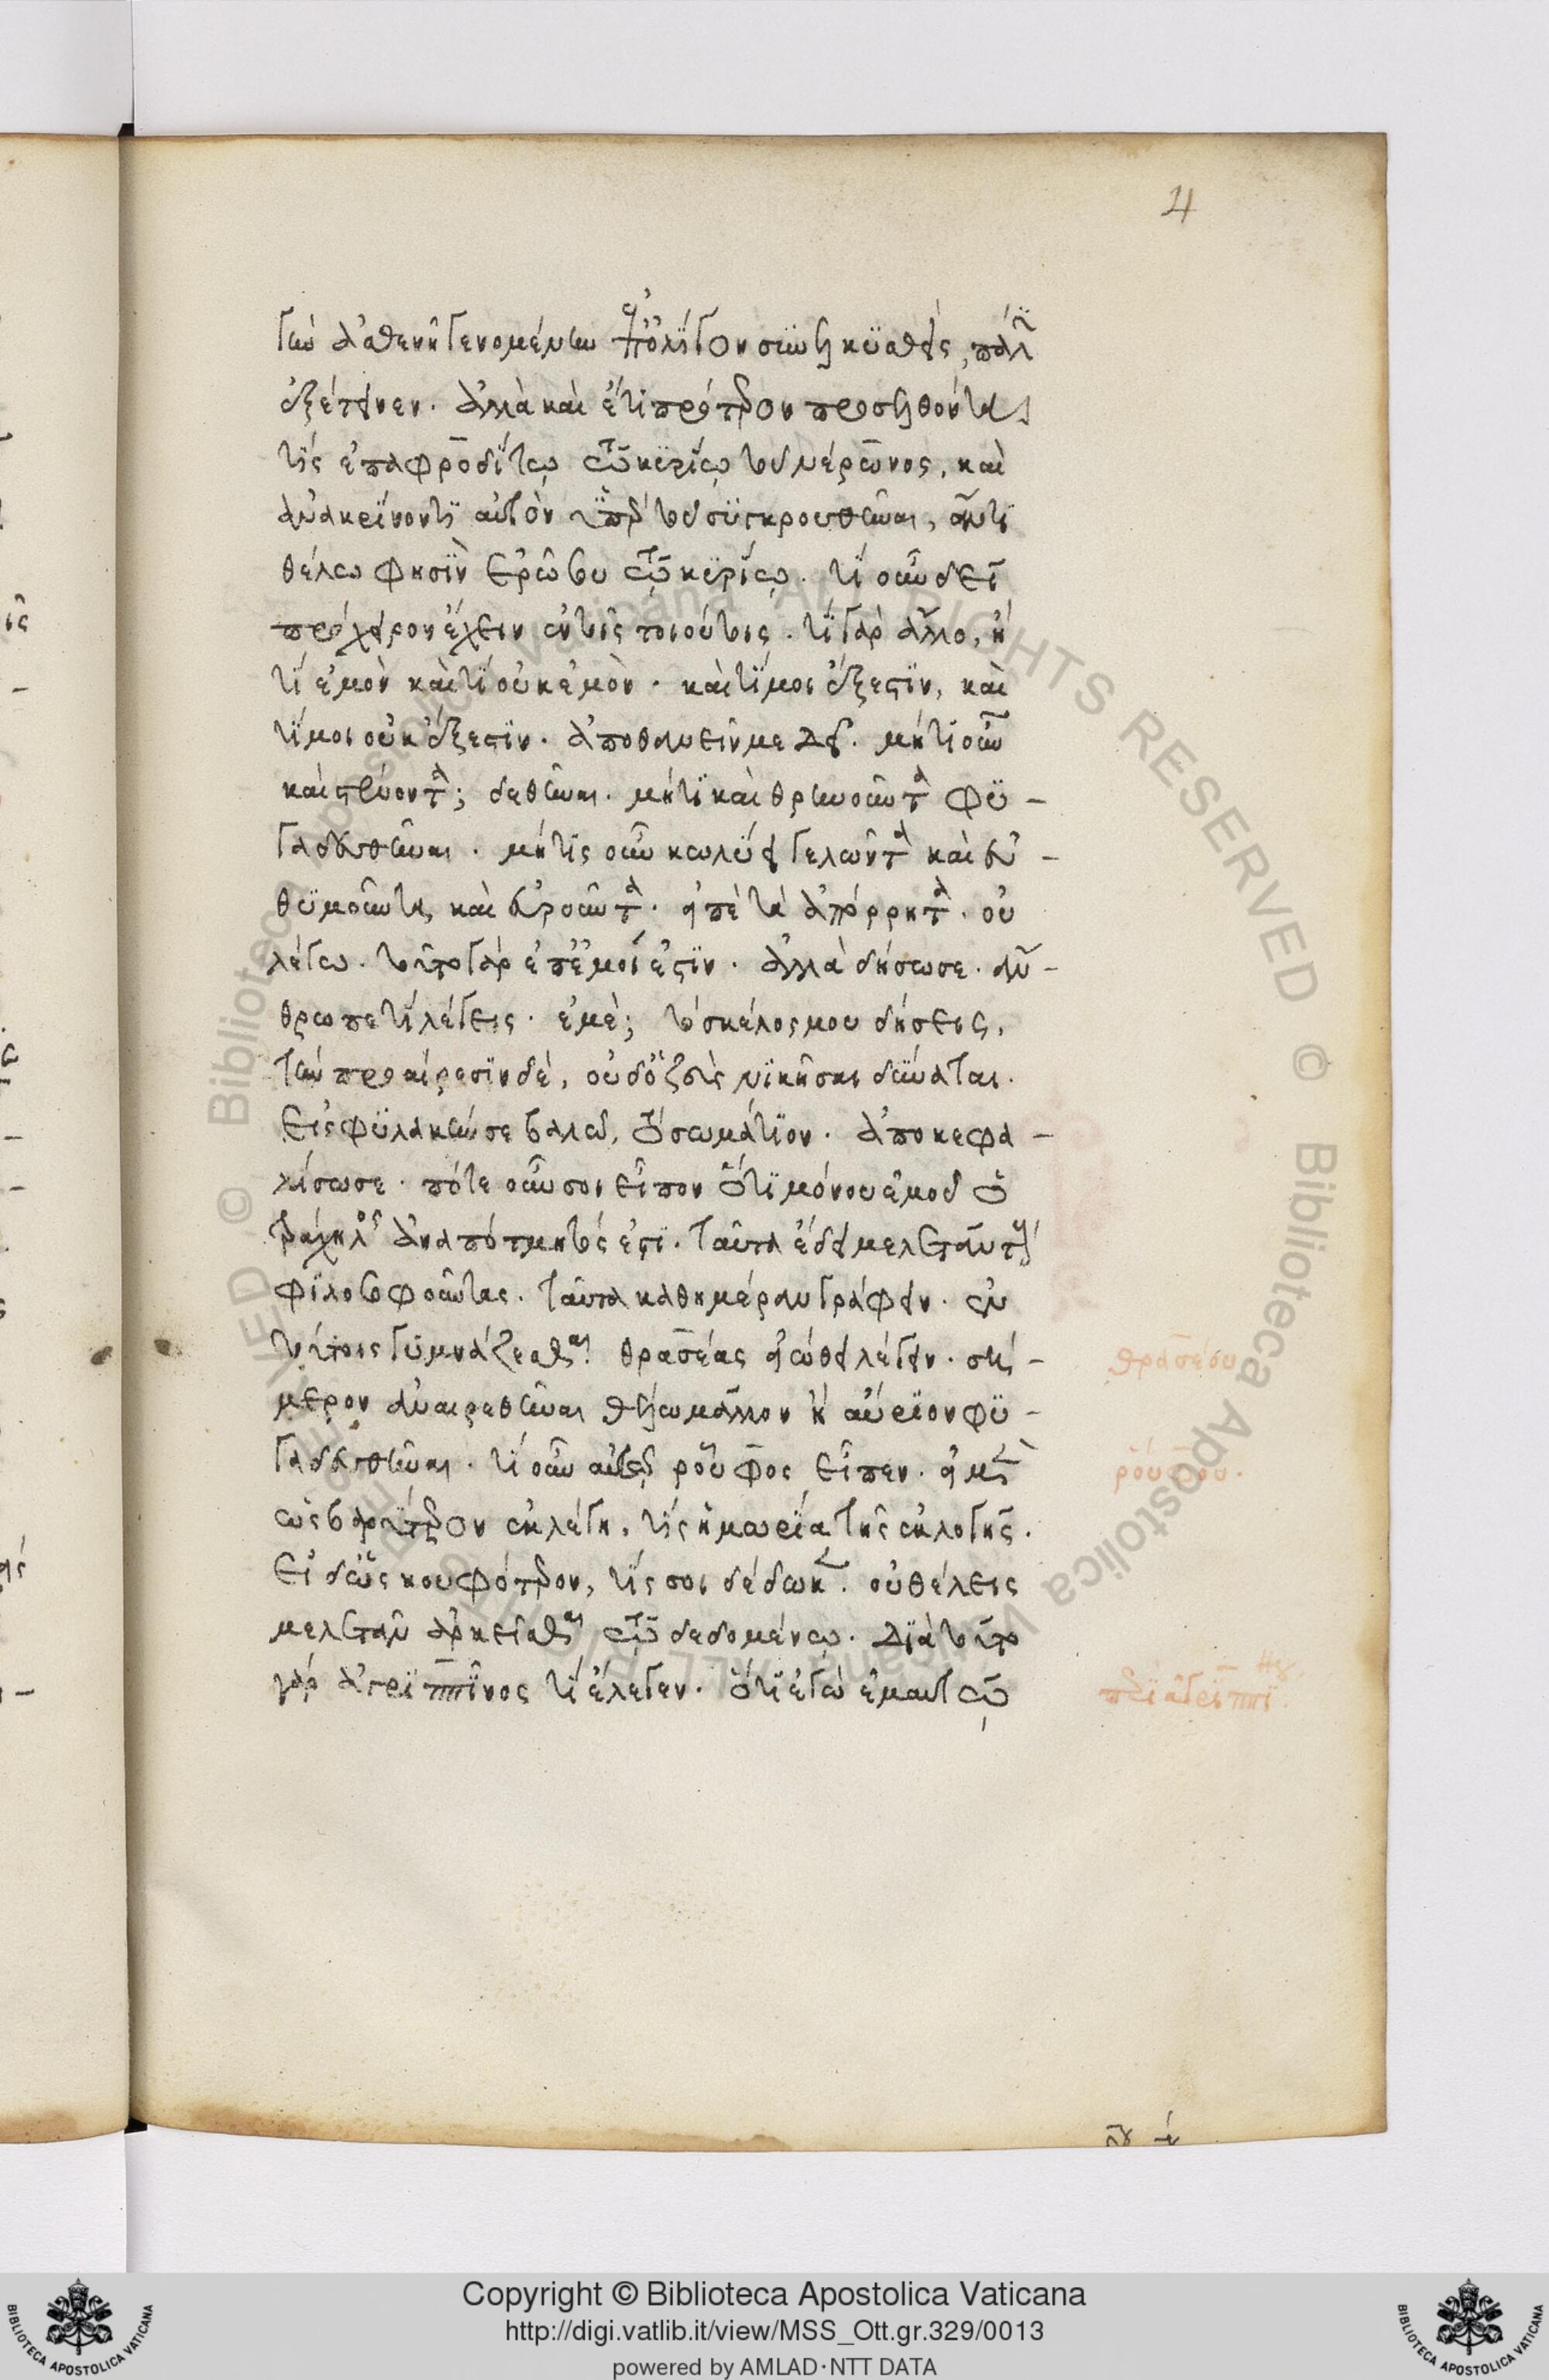 4
γὴν ἀσθενῆ γενομένην ἐπ᾽ ὀλίγον συνελκυσθεὶς, πάλιν
ἐξέτεινεν. ἀλλὰ καὶ ἔτι πρότερον προσελθόντι
τίς ἐπαφροδίτω τῶ κυρίω τοῦ νέρωνος, καὶ
ἀνακρίνοντι αὐτὸν ὑπὲρ τοῦ συγκρουσθῆναι, ἄν τι
θέλω φησὶν ἐρῶ σου τῶ κυρίω. τί οὖν δεῖ
πρόχειρον ἔχειν ἐν τοῖς τοιούτοις. τί γὰρ ἄλλο, ἢ
τί ἐμὸν καὶ τί οὐκ ἐμὸν. καὶ τί μοι ἔξεστιν, καὶ
τί μοι οὐκ ἔξεστιν. ἀποθανεῖν με δεῖ. μή τι οὖν
καὶ στένοντα; δεθῆναι. μή τι καὶ θρηνοῦντα φυ-
γαδευθῆναι. μή τις οὖν κωλύει γελῶντα καὶ εὐ-
θυμοῦντα καὶ εὐροοῦντα. εἰπὲ τὰ ἀπόρρητα. οὐ
λέγω. τοῦτο γὰρ ἐπ᾽ ἐμοί ἐστιν. ἀλλὰ δήσω σε. ἄν-
θρωπε τί λέγεις. ἐμὲ; τὸ σκέλος μου δήσεις,
τὴν προαίρεσιν δὲ, οὐδ᾽ ὁ ζεὺς νικῆσαι δύναται.
εἰς φυλακήν σε βαλῶ, τὸ σωμάτιον. ἀποκεφα-
λίσω σε. πότε οὖν σοι εἶπον ὅτι μόνου ἐμοῦ ὁ
τράχηλος ἀναπότμητός ἐστι. ταῦτα ἔδει μελετᾶν τοὺς
φιλοσοφοῦντας. ταῦτα καθημέραν γράφειν. ἐν
τούτοις γυμνάζεσθαι θρασέας εἰώθει λέγειν. σή-
μερον ἀναιρεθῆναι θέλω μᾶλλον ἢ αὔριον φυ-
γαδευθῆναι. τί οὖν αὐτῶ ῥοῦφος εἶπεν. εἰ μὲν
ὡς βαρύτερον ἐκλέγη, τίς ἡ μωρία τῆς ἐκλογῆς.
εἰ δ᾽ ὡς κουφότερον, τίς σοι δέδωκεν. οὐ θέλεις
μελετᾶν ἀρκεῖσθαι τῶ δεδομένω. διὰ τοῦτο
γὰρ ἀγριππῖνος τί ἔλεγεν. ὅτι ἐγὼ ἐμαυτῶ
θρασέου
ῥούφου.
περὶ ἀγριππί
Copyright © Biblioteca Apostolica Vaticana
http://digi.vatlib.it/view/MSS_Ott.gr.329/0013
powered by AMLAD·NTT DATA
BIBLIOTECA APOSTOLICA VATICANA
BIBLIOTECA APOSTOLICA VATICANA